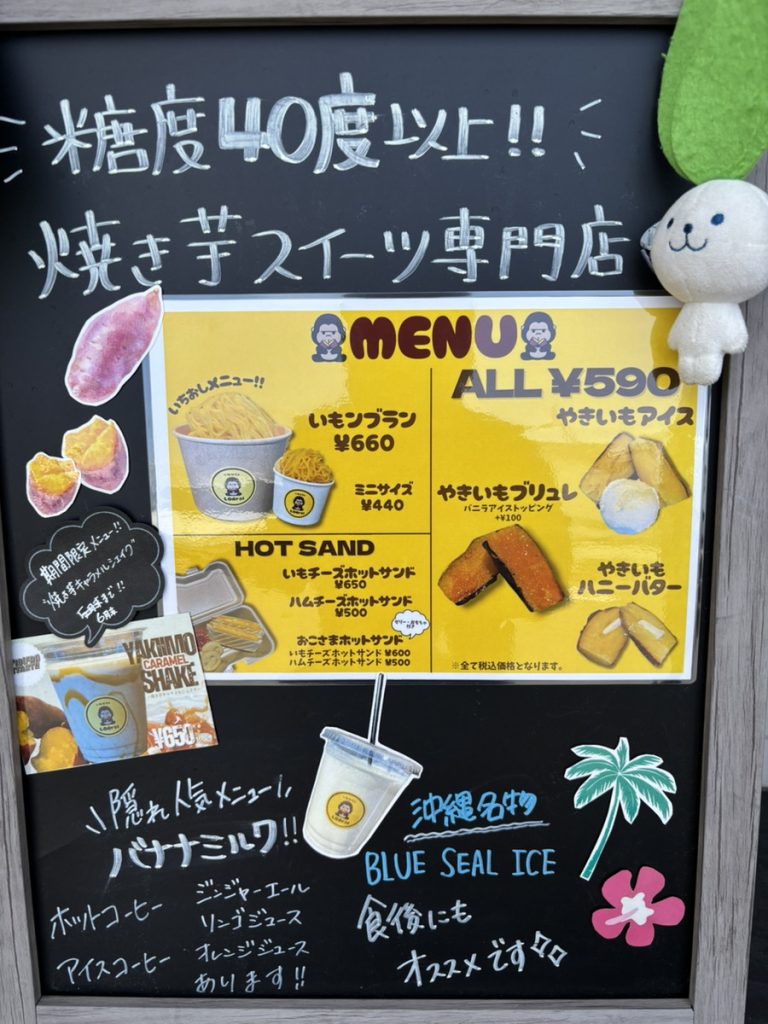 糖度40度以上!!
焼き芋スイーツ専門店
MENU
いちおしメニュー!!
いもンブラン
¥660
ミニサイズ
¥440
ALL ¥590
やきいもアイス
やきいもブリュレ
バニラアイストッピング
+¥100
やきいも
ハニーバター
※全て税込価格となります。
HOT SAND
いもチーズホットサンド
¥650
ハムチーズホットサンド
¥500
おこさまホットサンド
いもチーズホットサンド ¥600
ハムチーズホットサンド ¥500
期間限定メニュー!!
焼き芋キャラメルシェイク
6月末
まで!!
YAKIIMO
CARAMEL
SHAKE
¥650
隠れ人気メニュー
バナナミルク!!
ホットコーヒー
アイスコーヒー
ジンジャーエール
リンゴジュース
オレンジジュース
あります!!
沖縄名物
BLUE SEAL ICE
食後にも
オススメです